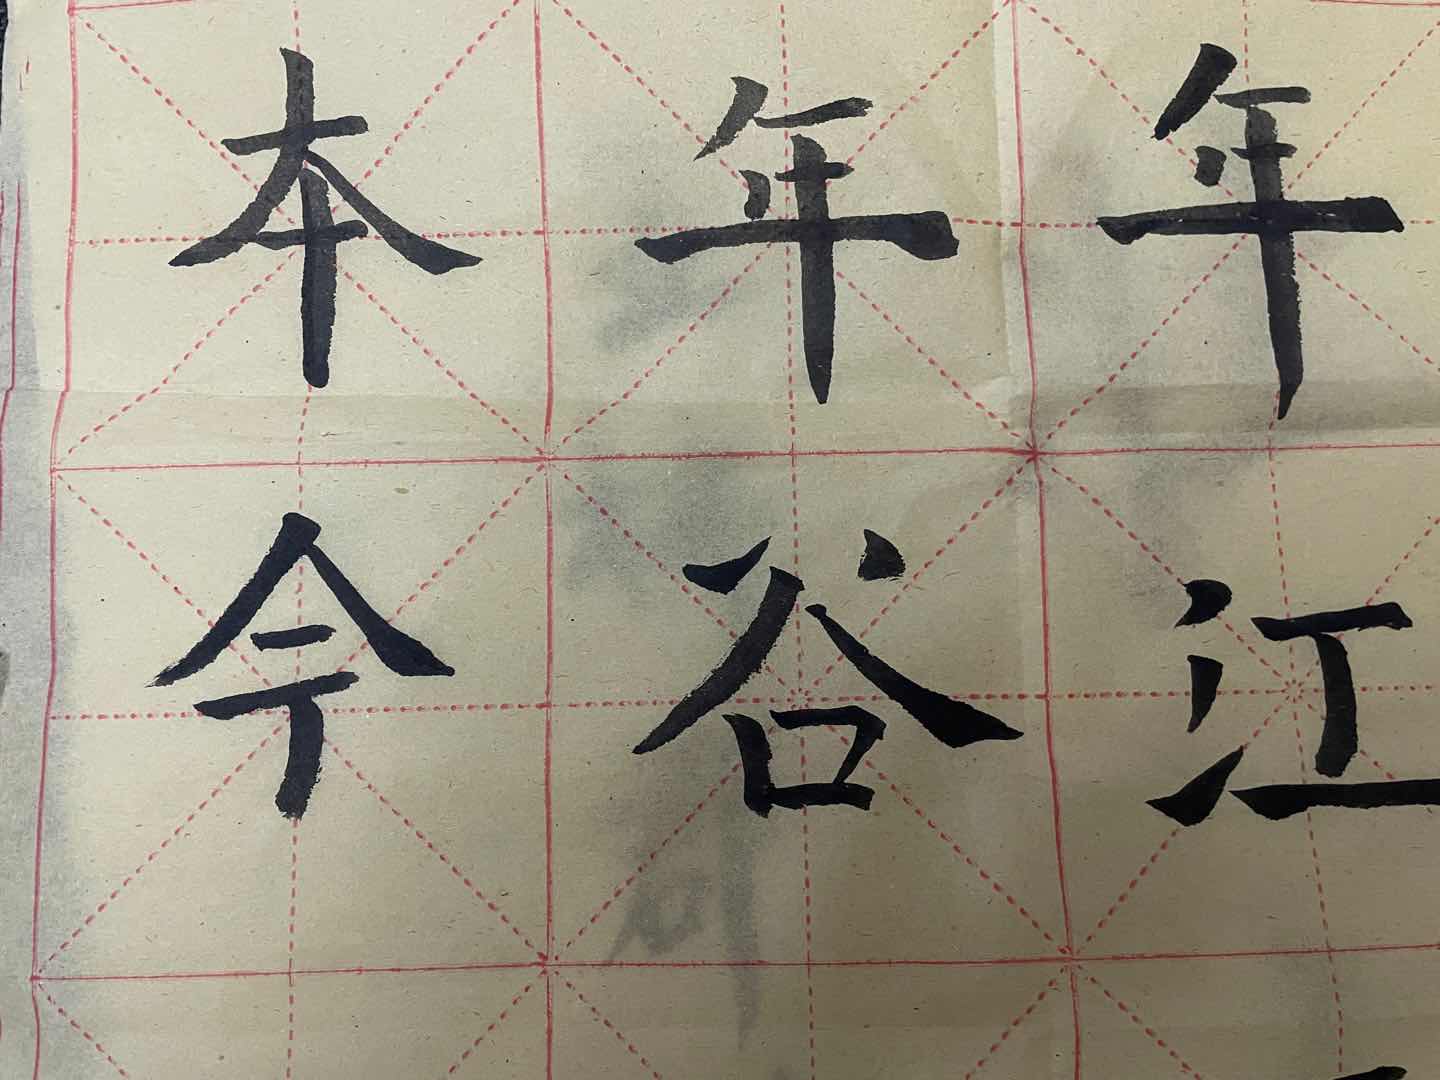 本年年
今谷江